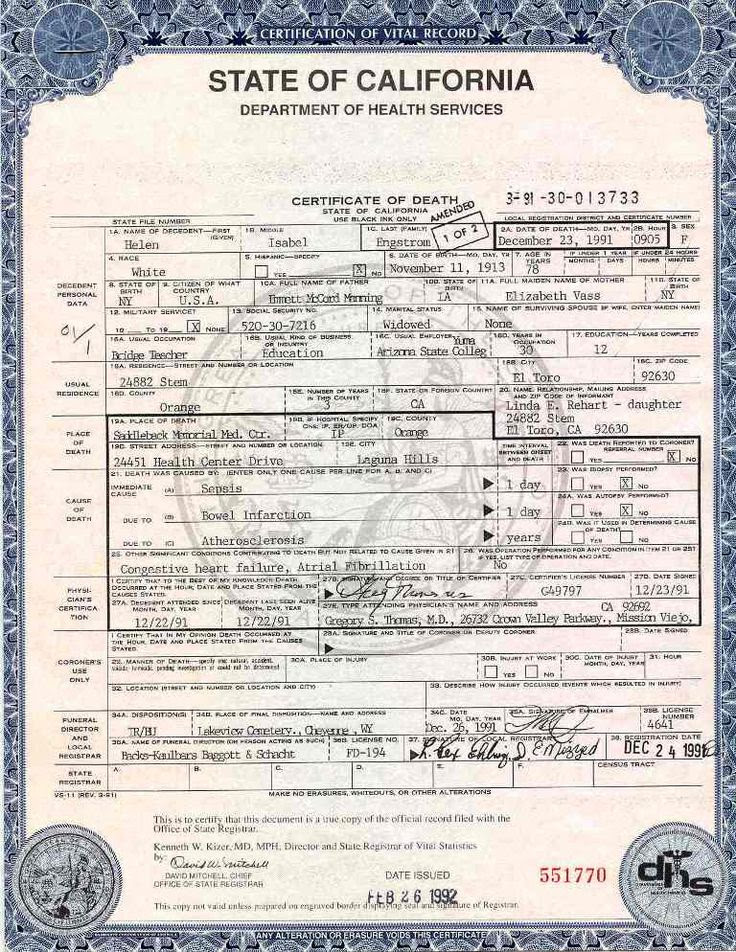 CERTIFICATION OF VITAL RECORD
STATE OF CALIFORNIA
DEPARTMENT OF HEALTH SERVICES
CERTIFICATE OF DEATH
STATE OF CALIFORNIA
USE BLACK INK ONLY
AMENDED
1 OF 2
3-91-30-013733
STATE FILE NUMBER
LOCAL REGISTRATION DISTRICT AND CERTIFICATE NUMBER
DECEDENT PERSONAL DATA
1A. NAME OF DECEDENT—FIRST (GIVEN) Helen
1B. MIDDLE Isabel
1C. LAST (FAMILY) Engstrom
2A. DATE OF DEATH—MO, DAY, YR December 23, 1991
2B. HOUR 0905
3. SEX F
4. RACE White
5. HISPANIC—SPECIFY YES X NO
6. DATE OF BIRTH—MO, DAY, YR November 11, 1913
7. AGE IN YEARS 78
IF UNDER 1 YEAR MONTHS DAYS
IF UNDER 24 HOURS HOURS MINUTES
8. STATE OF BIRTH NY
9. CITIZEN OF WHAT COUNTRY U.S.A.
10A. FULL NAME OF FATHER Emmett McCord Manning
10B. STATE OF BIRTH IA
11A. FULL MAIDEN NAME OF MOTHER Elizabeth Vass
11B. STATE OF BIRTH NY
12. MILITARY SERVICE? 19 TO 19 X NONE
13. SOCIAL SECURITY NO. 520-30-7216
14. MARITAL STATUS Widowed
15. NAME OF SURVIVING SPOUSE (IF WIFE, ENTER MAIDEN NAME) None
16A. USUAL OCCUPATION Bridge Teacher
16B. USUAL KIND OF BUSINESS OR INDUSTRY Education
16C. USUAL EMPLOYER Yuma Arizona State Colleg
16D. YEARS IN OCCUPATION 30
17. EDUCATION—YEARS COMPLETED 12
USUAL RESIDENCE
18A. RESIDENCE—STREET AND NUMBER OR LOCATION 24882 Stem
18B. CITY El Toro
18C. ZIP CODE 92630
18D. COUNTY Orange
18E. NUMBER OF YEARS IN THIS COUNTY 3
18F. STATE OR FOREIGN COUNTRY CA
20. NAME, RELATIONSHIP, MAILING ADDRESS AND ZIP CODE OF INFORMANT
Linda E. Rehart - daughter
24882 Stem
El Toro, CA 92630
PLACE OF DEATH
19A. PLACE OF DEATH Saddleback Memorial Med. Ctr.
19B. IF HOSPITAL, SPECIFY ONE: IP, ER/OP, DOA IP
19C. COUNTY Orange
19D. STREET ADDRESS—STREET AND NUMBER OR LOCATION 24451 Health Center Drive
19E. CITY Laguna Hills
TIME INTERVAL BETWEEN ONSET AND DEATH
22. WAS DEATH REPORTED TO CORONER? REFERRAL NUMBER YES X NO
CAUSE OF DEATH
21. DEATH WAS CAUSED BY: (ENTER ONLY ONE CAUSE PER LINE FOR A, B, AND C)
IMMEDIATE CAUSE (A) Sepsis 1 day
23. WAS BIOPSY PERFORMED? YES X NO
DUE TO (B) Bowel Infarction 1 day
24A. WAS AUTOPSY PERFORMED? YES X NO
DUE TO (C) Atherosclerosis years
24B. WAS IT USED IN DETERMINING CAUSE OF DEATH? YES NO
25. OTHER SIGNIFICANT CONDITIONS CONTRIBUTING TO DEATH BUT NOT RELATED TO CAUSE GIVEN IN 21
Congestive heart failure, Atrial Fibrillation
26. WAS OPERATION PERFORMED FOR ANY CONDITION IN ITEM 21 OR 25? IF YES, LIST TYPE OF OPERATION AND DATE.
No
PHYSICIAN'S CERTIFICATION
I CERTIFY THAT TO THE BEST OF MY KNOWLEDGE DEATH OCCURRED AT THE HOUR, DATE AND PLACE STATED FROM THE CAUSES STATED.
27A. DECEDENT ATTENDED SINCE MONTH, DAY, YEAR 12/22/91
DECEDENT LAST SEEN ALIVE MONTH, DAY, YEAR 12/22/91
27B. SIGNATURE AND DEGREE OR TITLE OF CERTIFIER
27C. CERTIFIER'S LICENSE NUMBER G49797
27D. DATE SIGNED 12/23/91
27E. TYPE ATTENDING PHYSICIAN'S NAME AND ADDRESS CA 92692
Gregory S. Thomas, M.D., 26732 Crown Valley Parkway., Mission Viejo,
CORONER'S USE ONLY
I CERTIFY THAT IN MY OPINION DEATH OCCURRED AT THE HOUR, DATE AND PLACE STATED FROM THE CAUSES STATED.
28A. SIGNATURE AND TITLE OF CORONER OR DEPUTY CORONER
28B. DATE SIGNED
29. MANNER OF DEATH—specify one: natural, accident, suicide, homicide, pending investigation or could not be determined
30A. PLACE OF INJURY
30B. INJURY AT WORK YES NO
30C. DATE OF INJURY MONTH, DAY, YEAR
31. HOUR
32. LOCATION (STREET AND NUMBER OR LOCATION AND CITY)
33. DESCRIBE HOW INJURY OCCURRED (EVENTS WHICH RESULTED IN INJURY)
FUNERAL DIRECTOR AND LOCAL REGISTRAR
34A. DISPOSITION(S) TR/BU
34B. PLACE OF FINAL DISPOSITION—NAME AND ADDRESS Lakeview Cemetery., Cheyenne, WY
34C. DATE MO, DAY, YEAR Dec. 26, 1991
35A. SIGNATURE OF EMBALMER
35B. LICENSE NUMBER 4641
36A. NAME OF FUNERAL DIRECTOR (OR PERSON ACTING AS SUCH) Backs-Kaulbars Baggott & Schacht
36B. LICENSE NO. FD-194
37. SIGNATURE OF LOCAL REGISTRAR
38. REGISTRATION DATE DEC 24 1991
STATE REGISTRAR
A. B. C. D. E. F. CENSUS TRACT
VS-11 (REV. 3-91)
MAKE NO ERASURES, WHITEOUTS, OR OTHER ALTERATIONS
This is to certify that this document is a true copy of the official record filed with the
Office of State Registrar.
Kenneth W. Kizer, MD, MPH, Director and State Registrar of Vital Statistics
by: David W. Mitchell
DAVID MITCHELL, CHIEF
OFFICE OF STATE REGISTRAR
DATE ISSUED
FEB 26 1992
551770
dhs
This copy not valid unless prepared on engraved border displaying seal and signature of Registrar.
ANY ALTERATION OR ERASURE VOIDS THIS CERTIFICATE